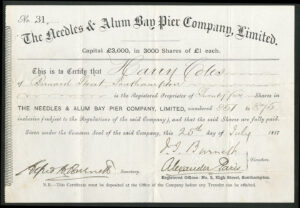 No. 31.
The Needles & Alum Bay Pier Company, Limited.
Capital £3,000, in 3000 Shares of £1 each.
This is to Certify that Harry Coles
of Street, Southampton
is the Registered Proprietor of Twenty five Shares in
THE NEEDLES & ALUM BAY PIER COMPANY, LIMITED, numbered to
inclusive (subject to the Regulations of the said Company), and that the said Shares are fully paid.
Given under the Common Seal of the said Company, this 25th day of July
Secretary.
Alexander Paris
Directors
Registered Offices: No. 2, High Street, Southampton.
N.B.—This Certificate must be deposited at the Office of the Company before any Transfer can be effected.